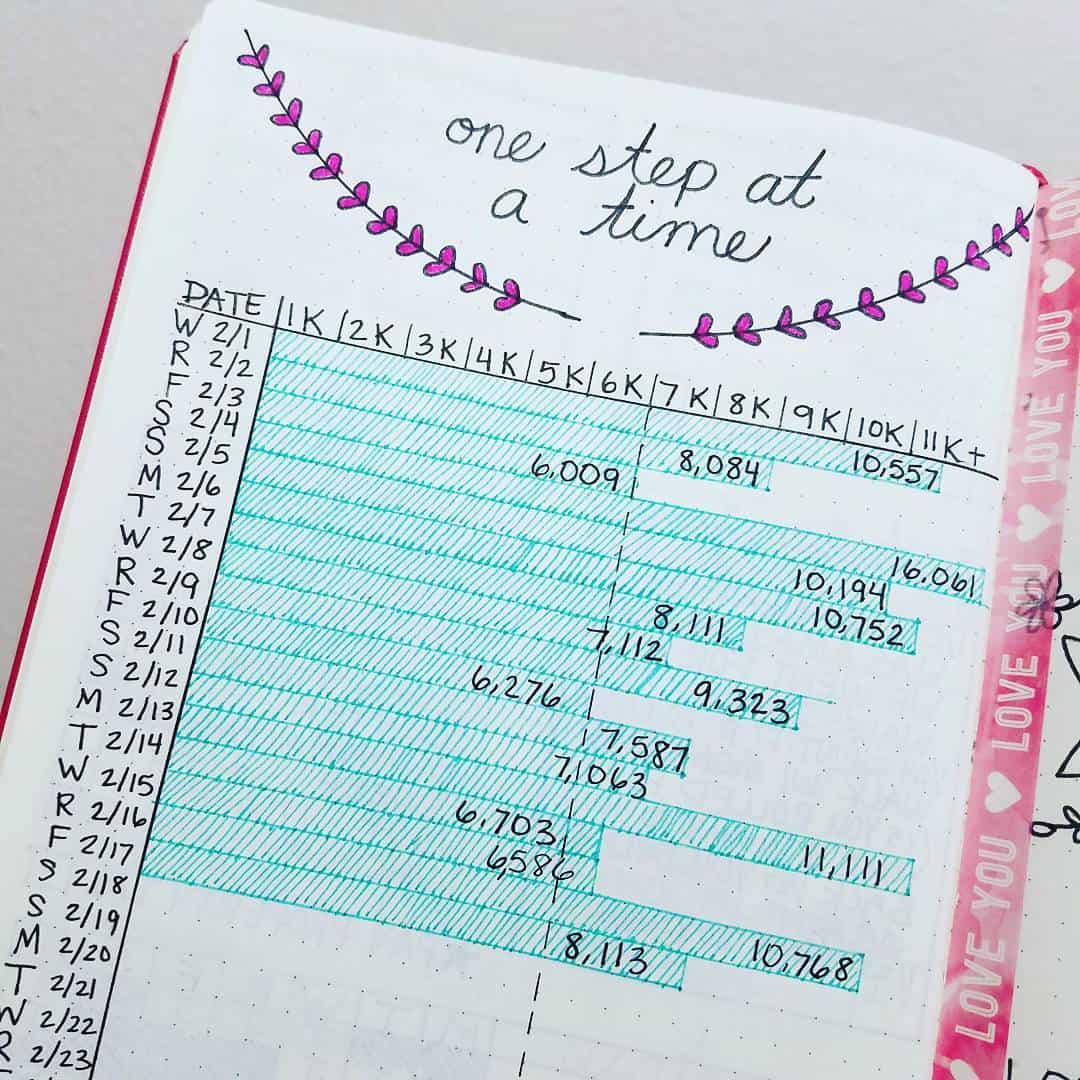 one step at
a time
DATE |1K|2K|3K|4K|5K|6K|7K|8K|9K|10K|11K+
W 2/1 10,557
R 2/2 8,084
F 2/3 6,009
S 2/4 16.061
S 2/5 10,194
M 2/6 10,752
T 2/7 8,111
W 2/8 7,112
R 2/9 9,323
F 2/10 6,276
S 2/11 7,587
S 2/12 7,063
M 2/13 11,111
T 2/14 6,703
W 2/15 6,586
R 2/16 10,768
F 2/17 8,113
S 2/18
S 2/19
M 2/20
T 2/21
W 2/22
R 2/23
LOVE YOU ♥ LOVE YOU ♥ LOVE YOU ♥ LOV